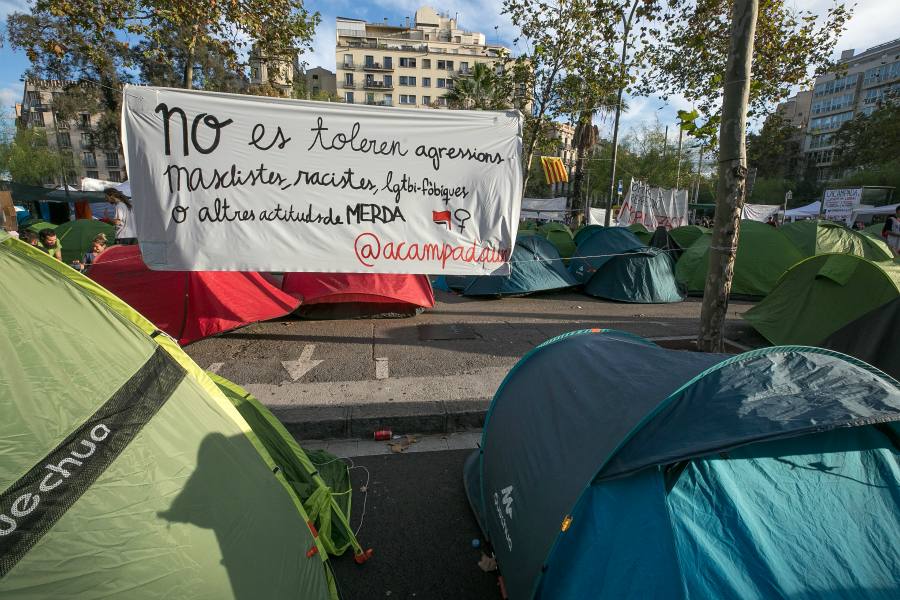 No es toleren agressions
masclistes, racistes, lgtbi-fòbiques
o altres actituds de MERDA
@acampadauni
uechua
LACAMPADA